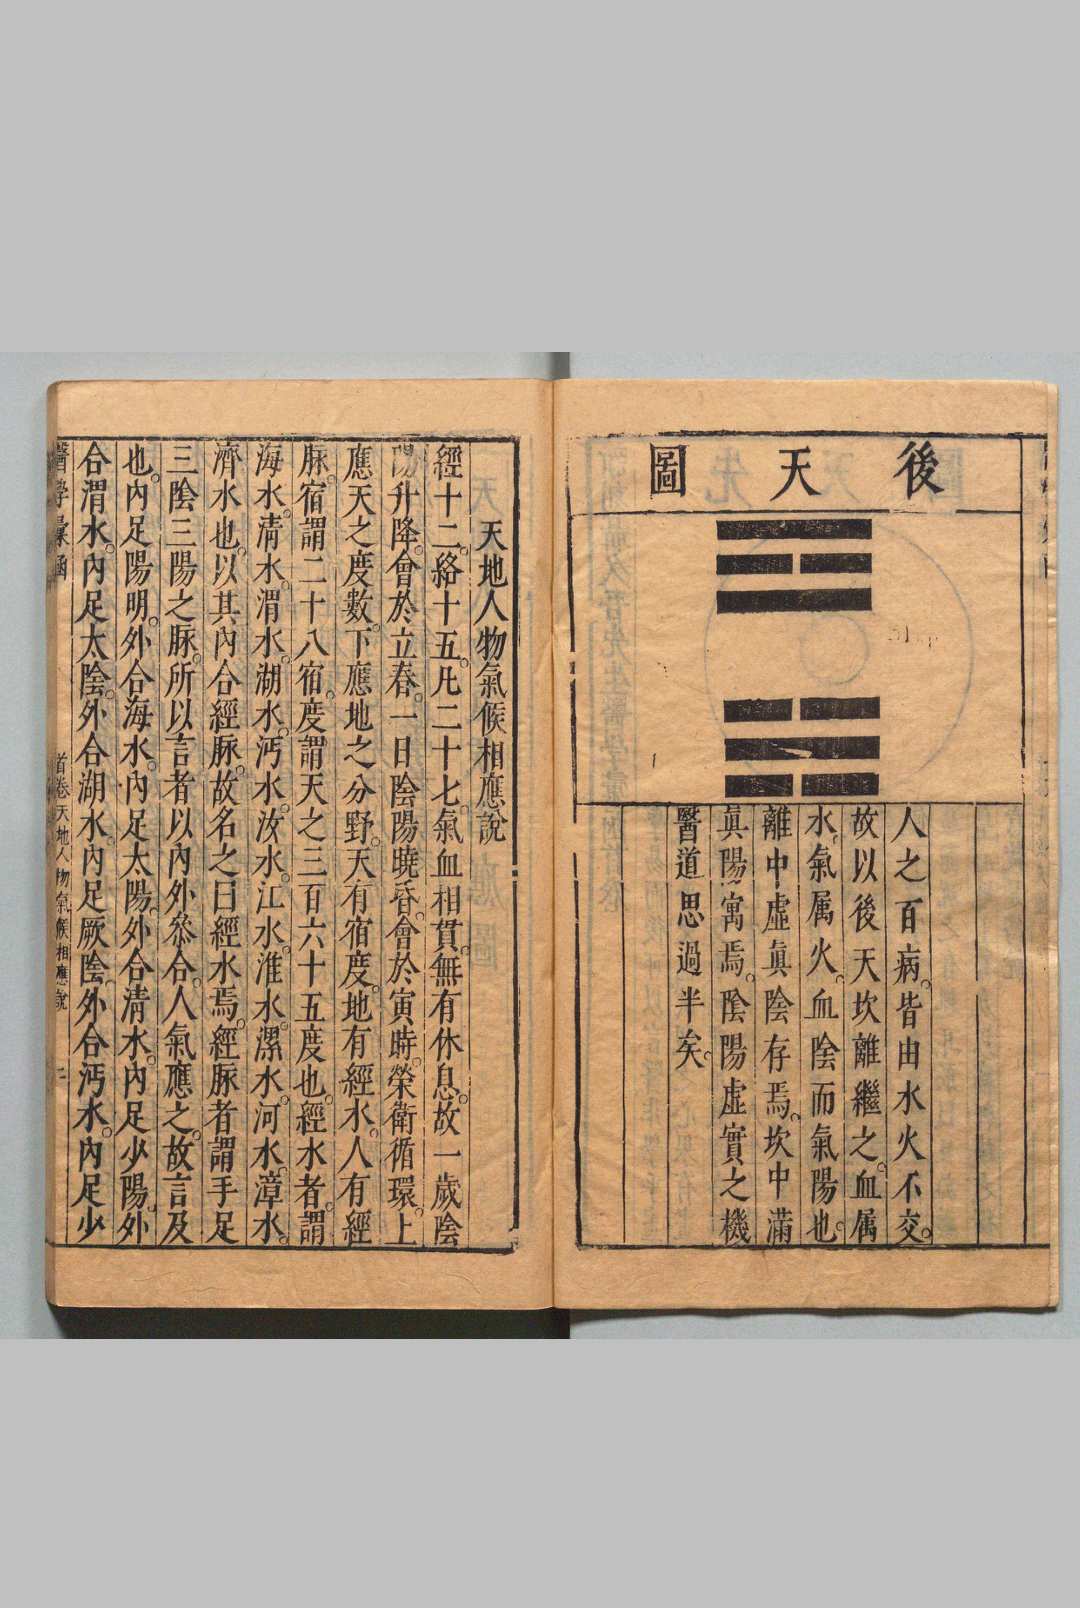 後天圖
人之百病皆由水火不交
故以後天坎離繼之血属
水氣属火血陰而氣陽也
離中虛眞陰存焉坎中滿
眞陽寓焉陰陽虛實之機
醫道思過半矣
天地人物氣候相應說
經十二絡十五凡二十七氣血相貫無有休息故一歲陰
陽升降會於立春一日陰陽曉昏會於寅時榮衛循環上
應天之度數下應地之分野天有宿度地有經水人有經
脉宿謂二十八宿度謂天之三百六十五度也經水者謂
海水淸水渭水湖水沔水汝水江水淮水漯水河水漳水
濟水也以其內合經脉故名之曰經水焉經脉者謂手足
三陰三陽之脉所以言者以內外叅合人氣應之故言及
也內足陽明外合海水內足太陽外合淸水內足少陽外
合渭水內足太陰外合湖水內足厥陰外合沔水內足少
醫學彙函
首卷天地人物氣候相應說
二